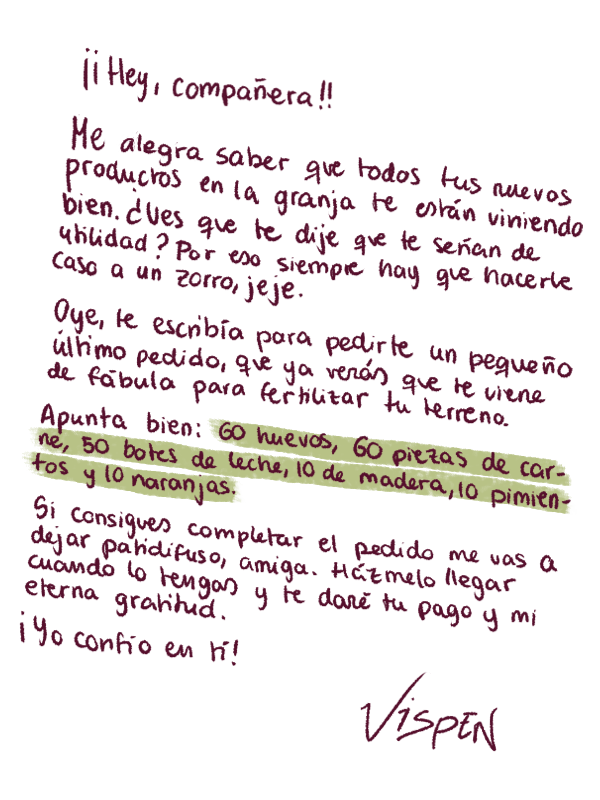 ¡¡Hey, compañera!!
Me alegra saber que todos tus nuevos
productos en la granja te están viniendo
bien. ¿Ves que te dije que te señan de
utilidad? Por eso siempre hay que hacerle
caso a un zorro, jeje.
Oye, te escribía para pedirte un pequeño
último pedido, que ya verás que te viene
de fábula para fertilizar tu terreno.
Apunta bien: 60 huevos, 60 piezas de car-
ne, 50 botes de leche, 10 de madera, 10 pimien-
tos y 10 naranjas.
Si consigues completar el pedido me vas a
dejar patidifuso, amiga. Házmelo llegar
cuando lo tengas y te daré tu pago y mi
eterna gratitud.
¡Yo confío en tí!
VISPEN